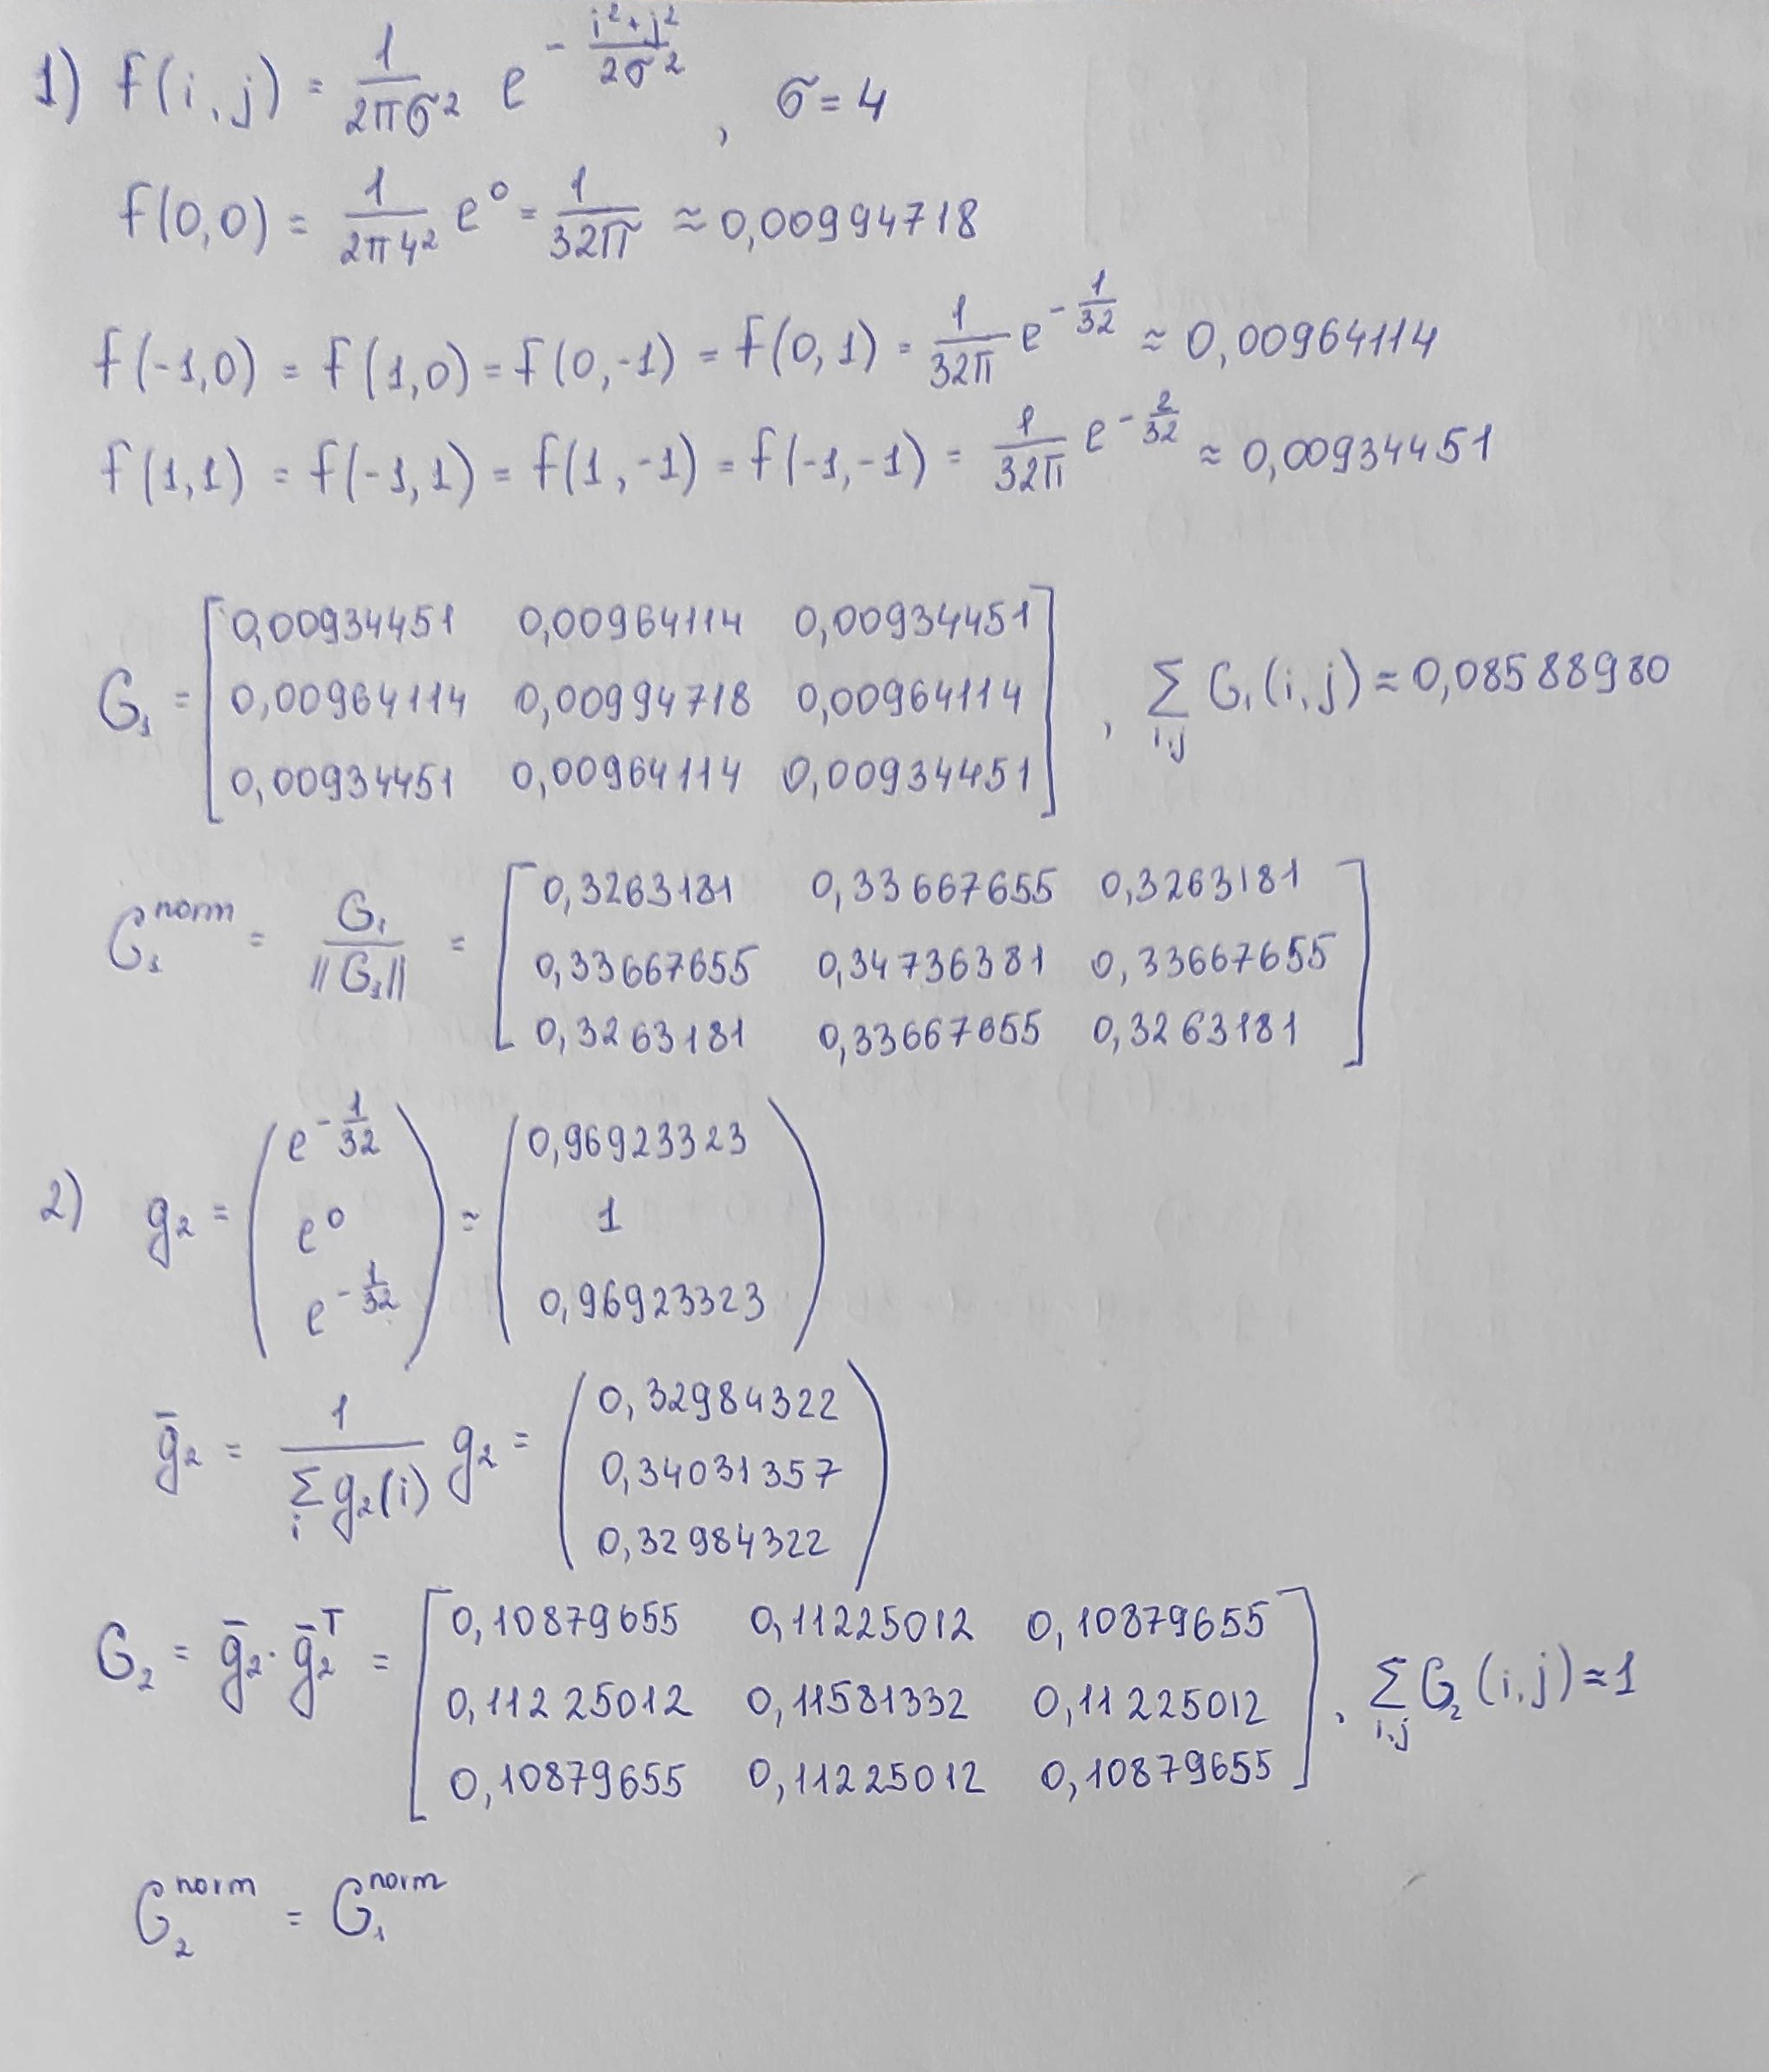 1) f(i,j) = 1/(2πσ²) e^(-(i²+j²)/(2σ²)), σ=4
f(0,0) = 1/(2π4²) e⁰ = 1/(32π) ≈ 0,00994718
f(-1,0) = f(1,0) = f(0,-1) = f(0,1) = 1/(32π) e^(-1/32) ≈ 0,00964114
f(1,1) = f(-1,1) = f(1,-1) = f(-1,-1) = 1/(32π) e^(-2/32) ≈ 0,00934451
G₁ = [0,00934451 0,00964114 0,00934451
0,00964114 0,00994718 0,00964114
0,00934451 0,00964114 0,00934451], Σ_{i,j} G₁(i,j) ≈ 0,08588980
G₁^norm = G₁/||G₁|| = [0,3263181 0,33667655 0,3263181
0,33667655 0,34736381 0,33667655
0,3263181 0,33667655 0,3263181]
2) g₂ = (e^(-1/32) e⁰ e^(-1/32)) ≈ (0,96923323
1
0,96923323)
ḡ₂ = 1/(Σ_i g₂(i)) g₂ = (0,32984322
0,34031357
0,32984322)
G₂ = ḡ₂·ḡ₂ᵀ = [0,10879655 0,11225012 0,10879655
0,11225012 0,11581332 0,11225012
0,10879655 0,11225012 0,10879655], Σ_{i,j} G₂(i,j) ≈ 1
G₂^norm = G₁^norm